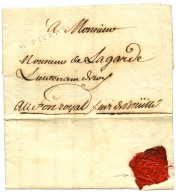 A Monsieur
ST PIERRE
Monsieur de Lagarde
Lieutenant de Roy
Au Fort royal